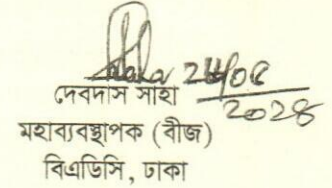 24/08
2028
দেবদাস সাহা
মহাব্যবস্থাপক (বীজ)
বিএডিসি, ঢাকা